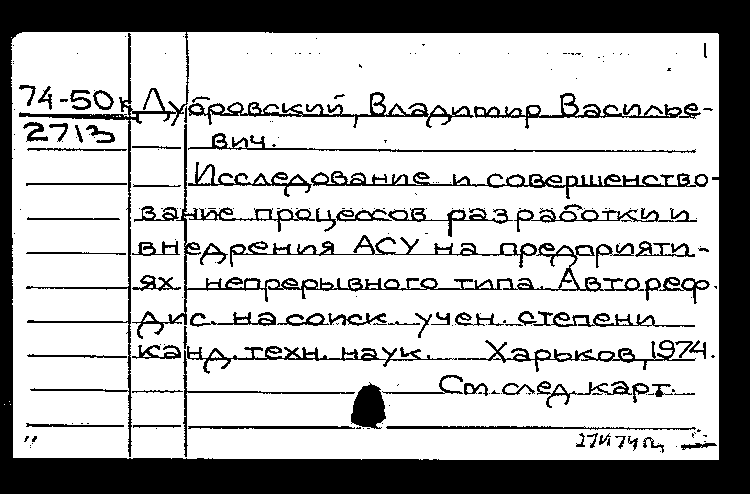 1
74-50к Дубровский, Владимир Василье-
2713 вич.
Исследование и совершенство-
вание процессов разработки и
внедрения АСУ на предприяти-
ях непрерывного типа. Автореф.
дис. на соиск. учен. степени
канд. техн. наук. Харьков, 1974.
См. след. карт.